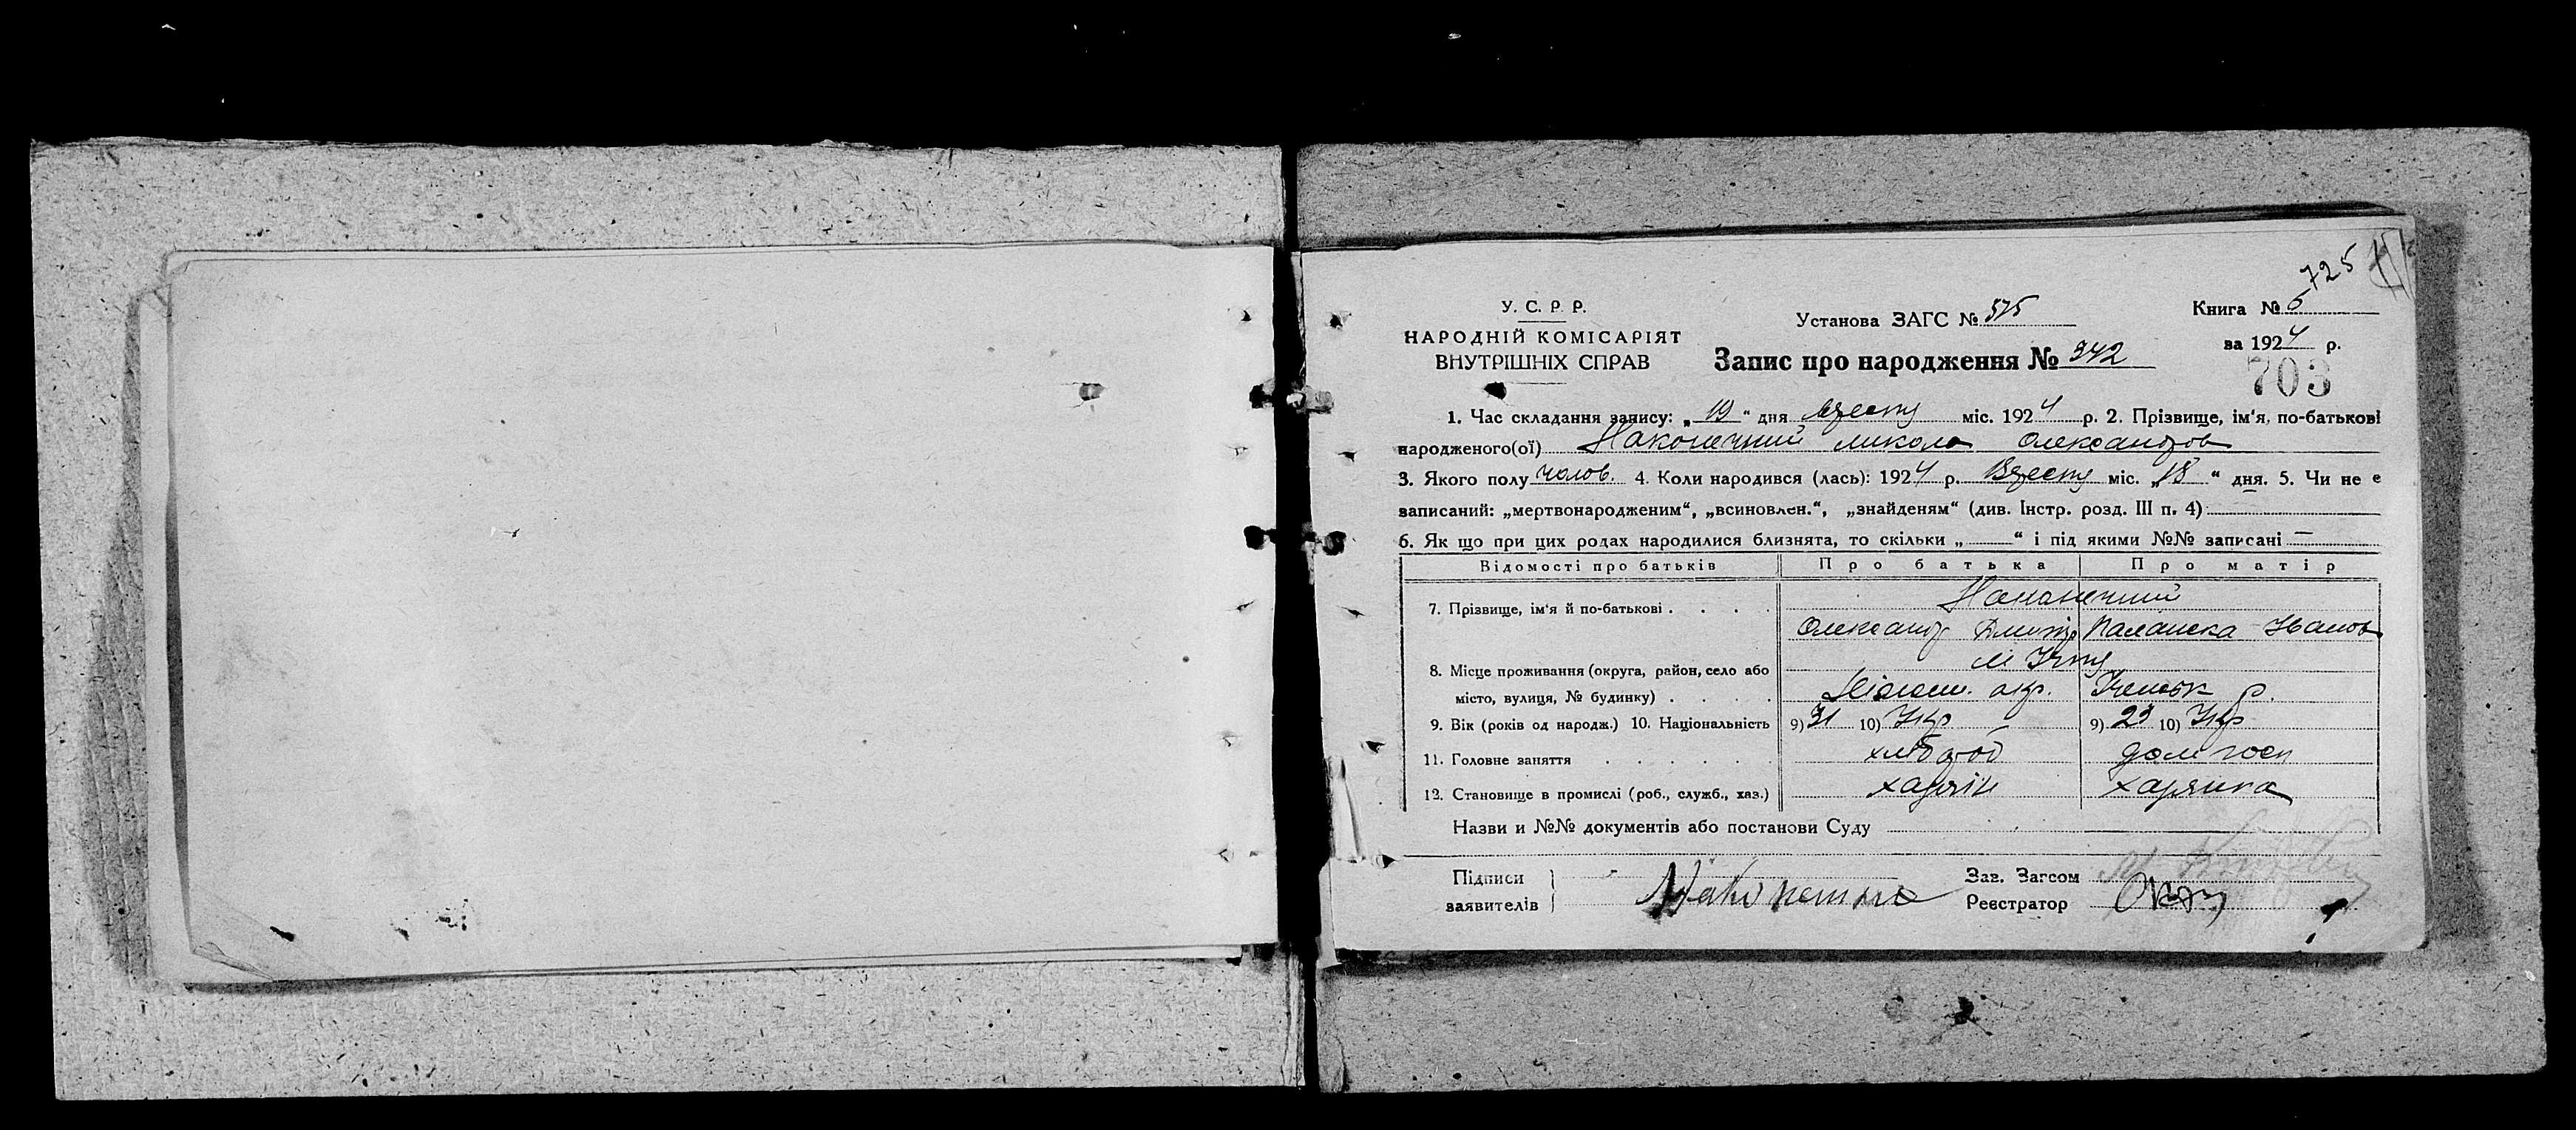 725
У. С. Р. Р.
НАРОДНІЙ КОМІСАРІЯТ
ВНУТРІШНІХ СПРАВ
Установа ЗАГС № 575
Книга № 6
Запис про народження № 342
за 1924 р.
703
1. Час складання запису: „19“ дня міс. 1924 р. 2. Прізвище, ім'я, по-батькові
народженого(ої) Наконечний микола олександров
3. Якого полу чолов. 4. Коли народився (лась): 1924 р. Вресту міс. „18“ дня. 5. Чи не є
записаний: „мертвонародженим“, „всиновлен.“, „знайденям“ (див. Інстр. розд. III п. 4)
6. Як що при цих родах народилися близнята, то скільки „—“ і під якими №№ записані —
Відомості про батьків Про батька Про матір
7. Прізвище, ім'я й по-батькові . . . . Наконечний
Олександр Дмитр Палашка Іванов
8. Місце проживання (округа, район, село або м Ічня
місто, вулиця, № будинку) . . . . окр. р.
9. Вік (років од народж.) 10. Національність 9) 31 10) Укр 9) 23 10) Укр
11. Головне заняття . . . . . . хлібороб дом госп
12. Становище в промислі (роб., служб., хаз.) хазяїн хазяйка
Назви и №№ документів або постанови Суду
Підписи
заявителів
Зав. Загсом
Реєстратор